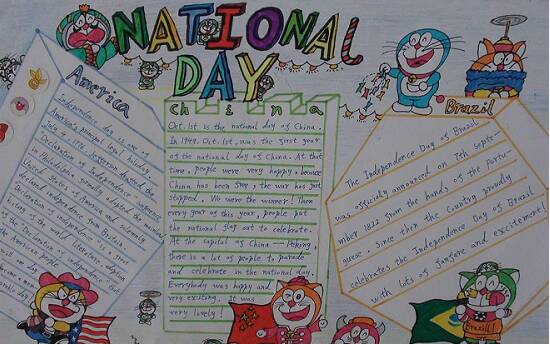 NATIONAL
DAY
America
Independence day is one of
America's primary legal holiday.
July 4, 1776, Jefferson drafted the
Declaration of Independence
in Philadelphia
United States of America and solemnly
declared independence from Britain.
Declaration of independence is
history of the
of the Declaration of Independence
the American people.
China
Oct. 1st is the national day of China.
In 1949. Oct. 1st, was the first year
of the national day of China. At that
time, people were very happy, because
China has been stop, the war has got
stopped. We were the winner! Then
every year of this year, people put
the national flag out to celebrate.
At the capital of China — Peking,
there is a lot of people to parade
and celebrate in the national day.
Everybody was happy and
very exciting. It was
very lively!
Brazil
The Independence Day of Brazil
was officially announced on 7th Septe-
mber 1822 from the hands of the Portu-
guese. Since then the Country proudly
celebrates the Independence Day of Brazil
with lots of fanfare and excitement!
Brazil!